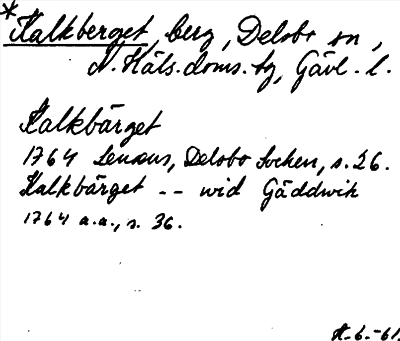 * Kalkberget, berg, Delsbo sn,
N. Häls. doms. hg, Gävl. l.
Kalkbärget
1764 Lenæus, Delsbo Sochen, s. 26.
Kalkbärget -- wid Gäddwik
1764 a.a., s. 36.
H. 6. -61.